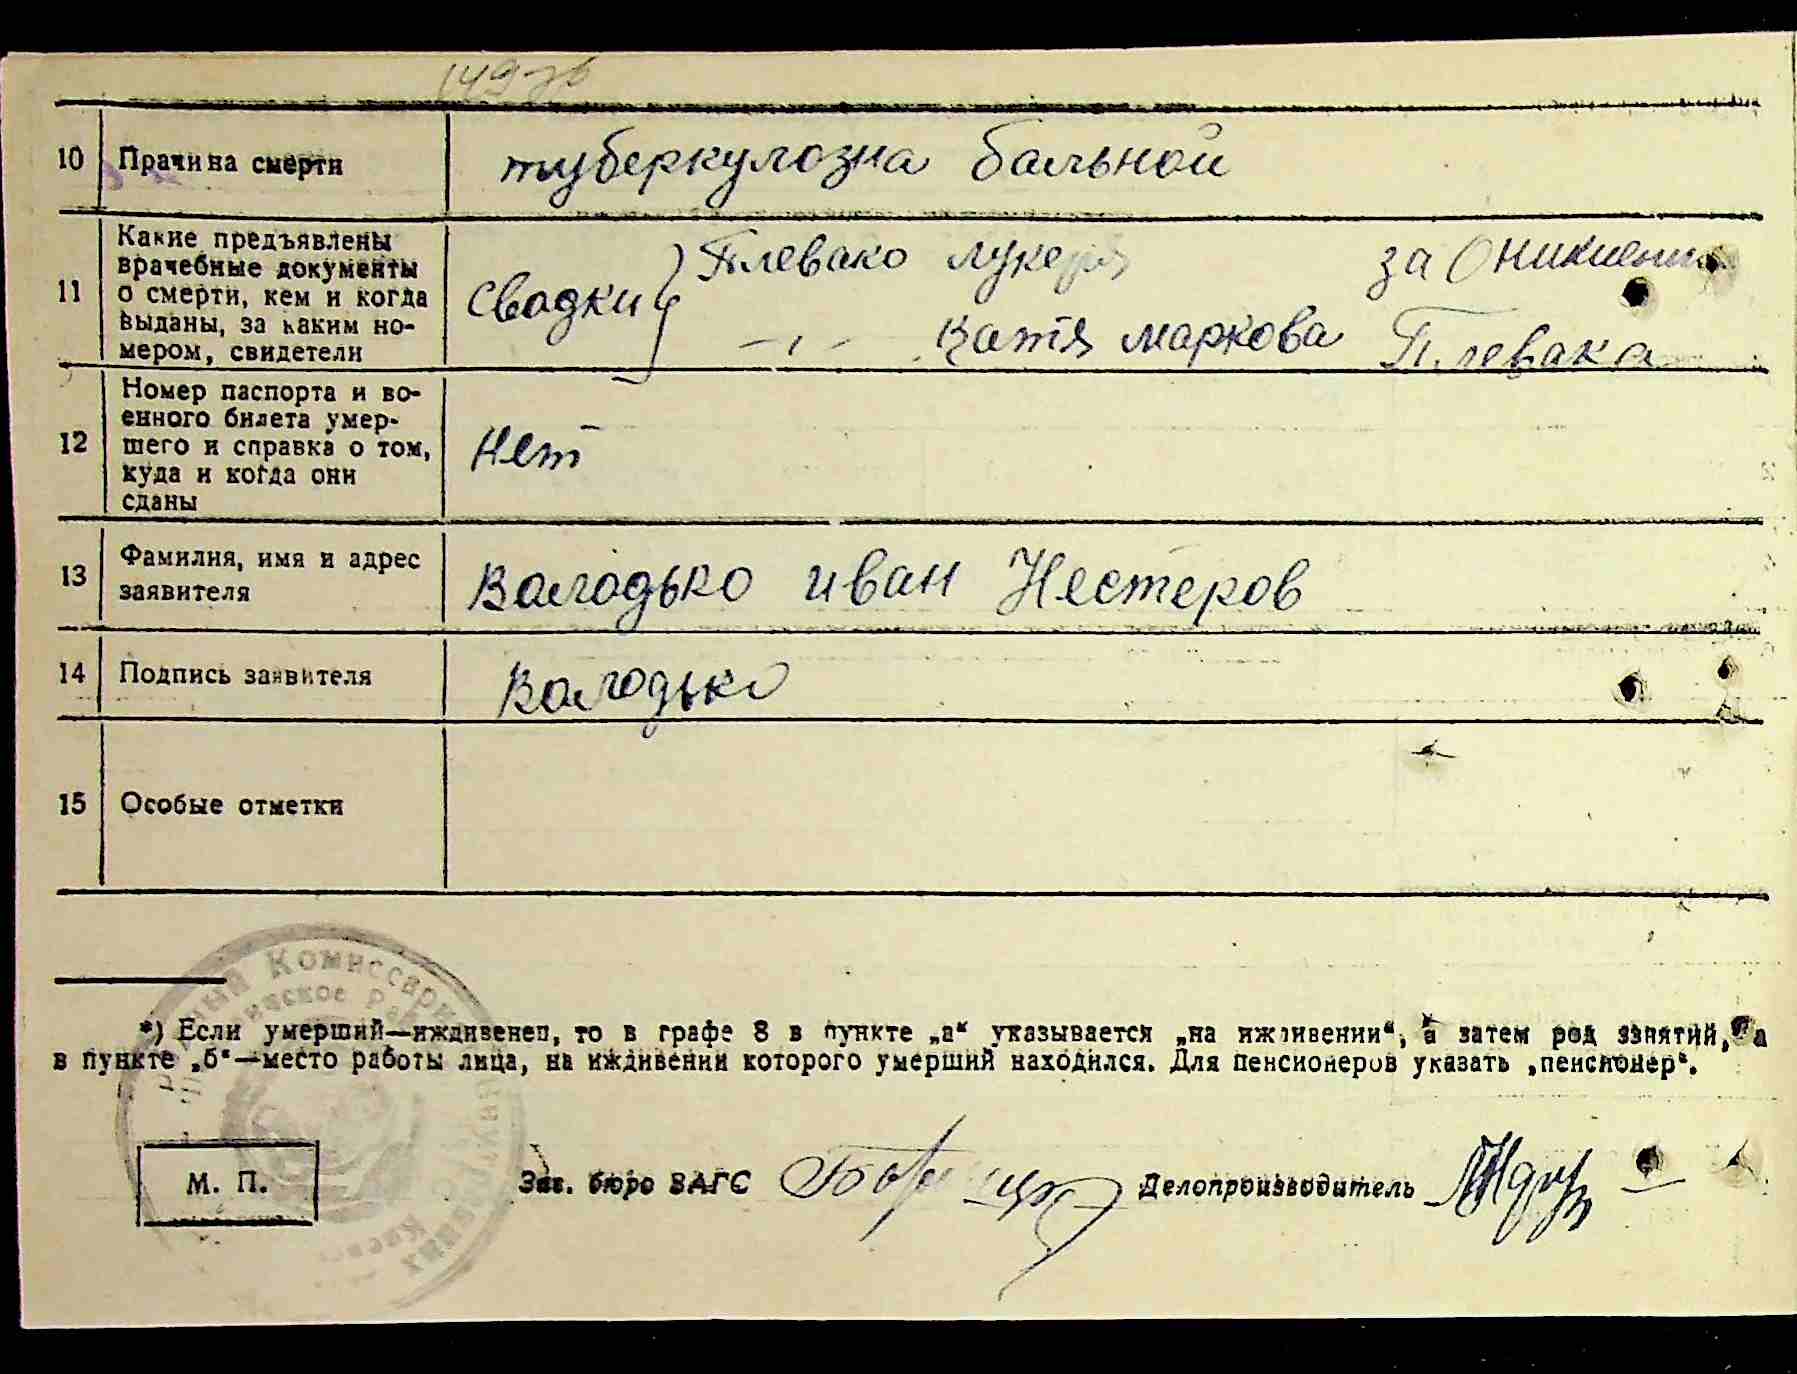 10 Прачина смерти туберкулозна бальной
11 Какие предъявлены врачебные документы о смерти, кем и когда выданы, за каким но-
мером, свидетели
свадки Плевако лукеря за
—〃— Катя маркова Плевака
12 Номер паспорта и во-
енного билета умер-
шего и справка о том,
куда и когда они
сданы
нет
13 Фамилия, имя и адрес
заявителя
Валодько иван Нестеров
14 Подпись заявителя Валодько
15 Особые отметки
*) Если умерший—иждивенец, то в графе 8 в пункте „а“ указывается „на иждивении“, а затем род занятий, а
в пункте „б“—место работы лица, на иждивении которого умерший находился. Для пенсионеров указать „пенсионер“.
М. П.
Зав. бюро ЗАГС
Делопроизводитель